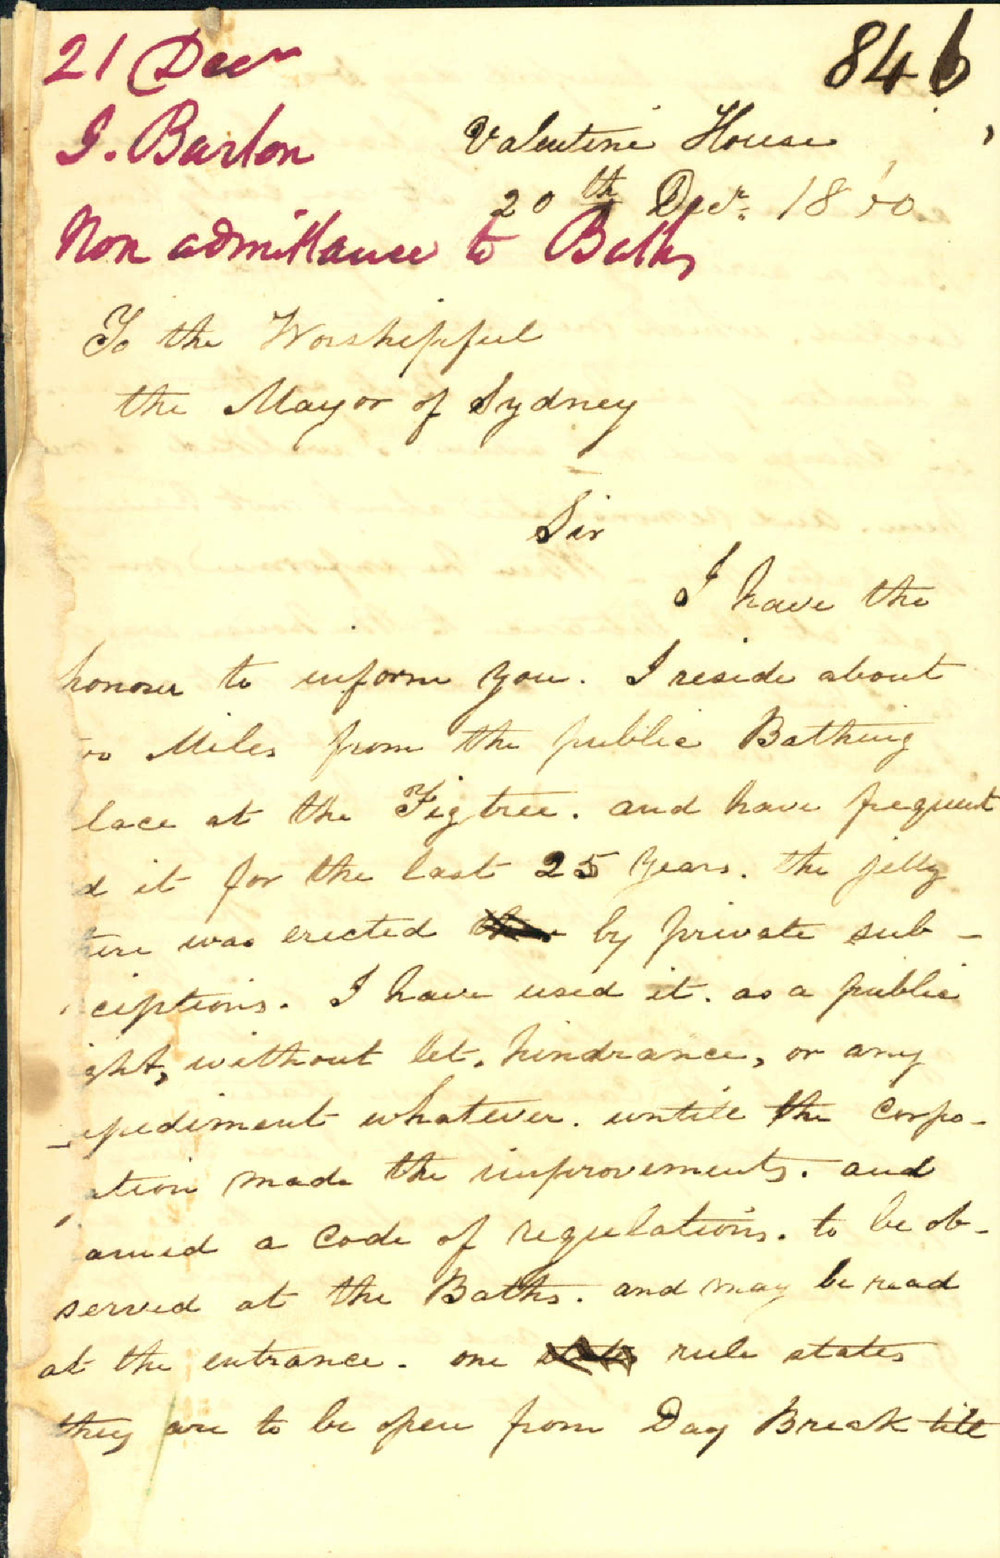 21 Decr
846
J. Barlon
Valentine House
20th Decr. 18
Non admittance to Baths
To the Worshipful
the Mayor of Sydney
Sir
I have the
honour to inform you. I reside about
oo Miles from the public Bathing
lace at the Figtree. and have frequent
d it for the last 25 years. the jetty
here was erected by private sub-
ciptions. I have used it. as a public
ight, without let. hindrance, or any
pediment whatever. untill the Corpo-
ation made the improvements. and
amed a Code of regulations. to be ob-
served at the Baths. and may be read
at the entrance. one rule states
they are to be open from Day Break till